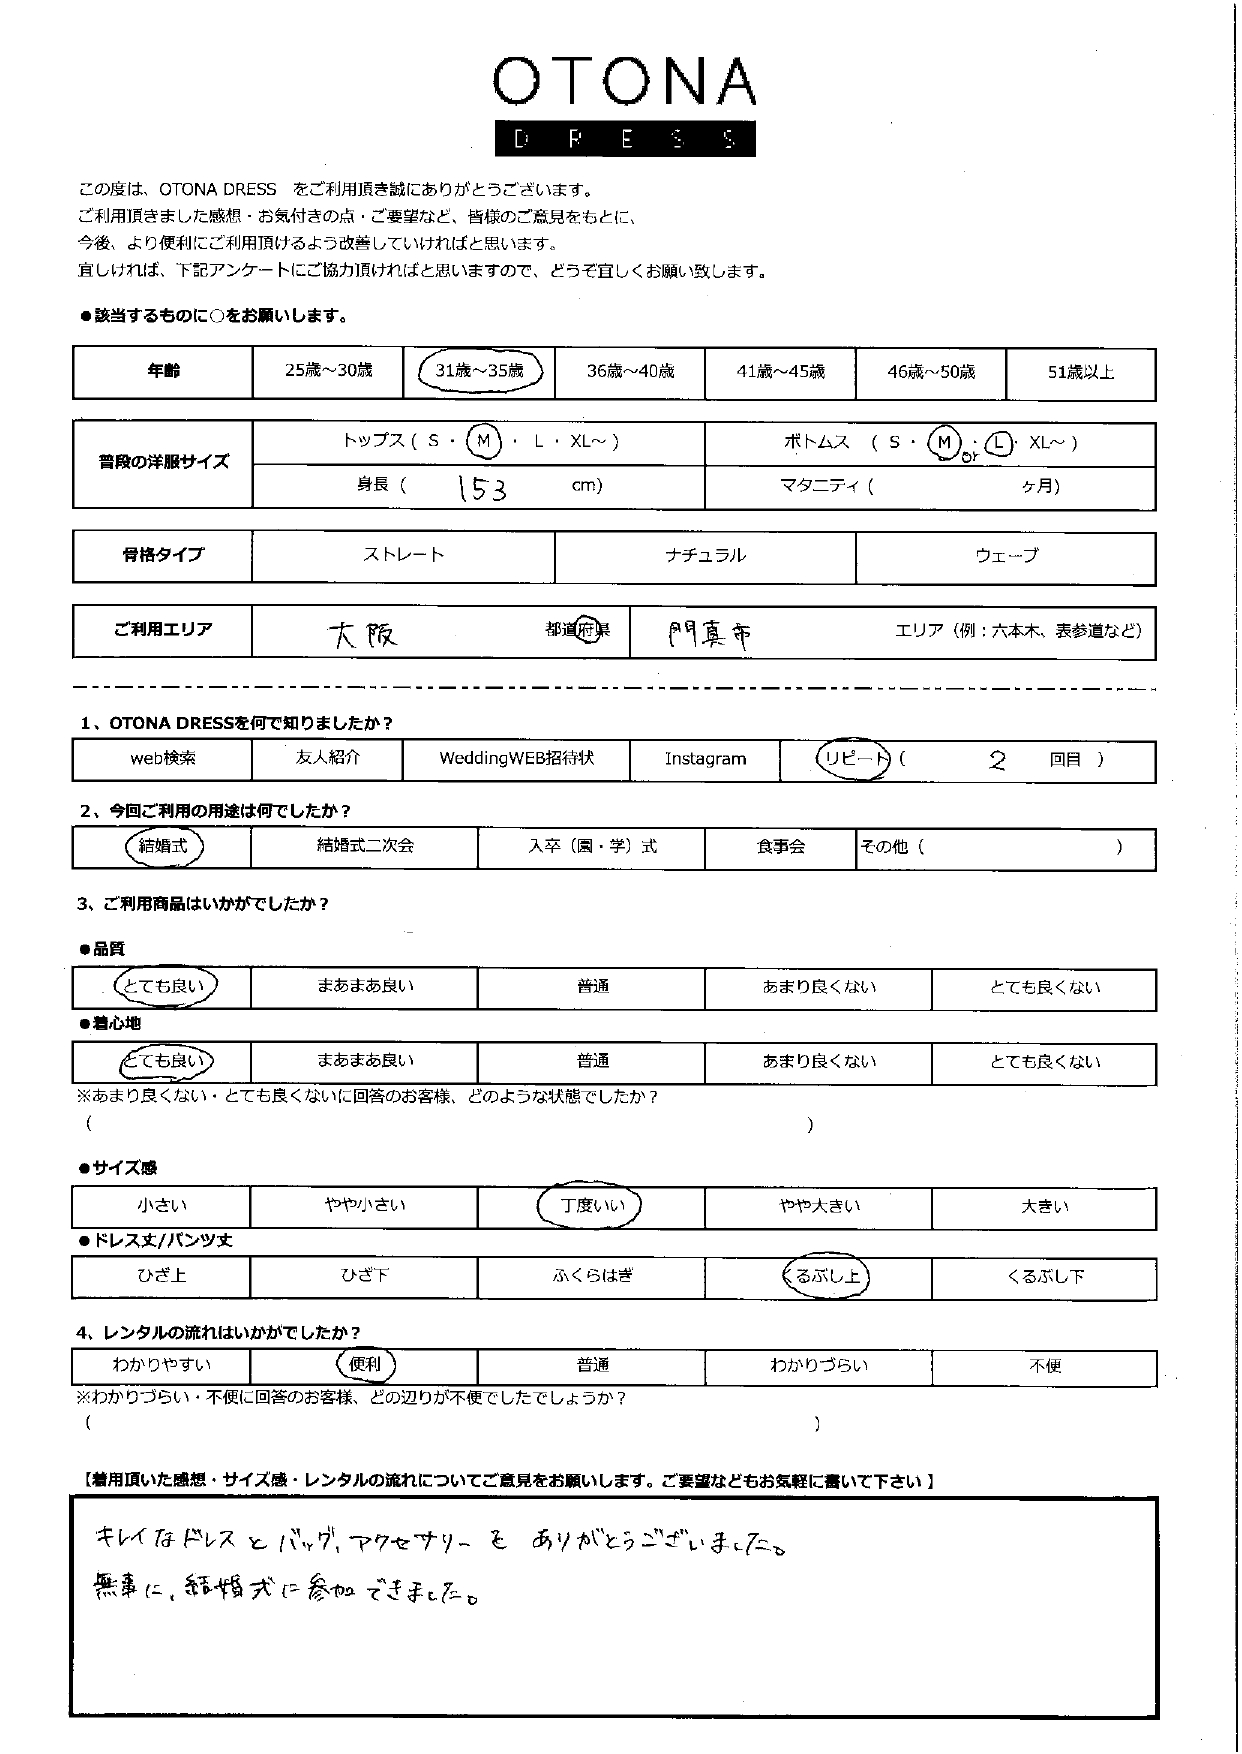 OTONA
DRESS
この度は、OTONA DRESS をご利用頂き誠にありがとうございます。
ご利用頂きました感想・お気付きの点・ご要望など、皆様のご意見をもとに、
今後、より便利にご利用頂けるよう改善していければと思います。
宜しければ、下記アンケートにご協力頂ければと思いますので、どうぞ宜しくお願い致します。
●該当するものに○をお願いします。
年齢 25歳～30歳 31歳～35歳 36歳～40歳 41歳～45歳 46歳～50歳 51歳以上
普段の洋服サイズ トップス ( S ・ M ・ L ・ XL～ ) ボトムス ( S ・ M ・ or L ・ XL～ )
身長 ( 153 cm) マタニティ ( ヶ月)
骨格タイプ ストレート ナチュラル ウェーブ
ご利用エリア 大阪 都道府県 門真市 エリア（例：六本木、表参道など）
1、OTONA DRESSを何で知りましたか？
web検索 友人紹介 WeddingWEB招待状 Instagram リピート ( 2 回目 )
2、今回ご利用の用途は何でしたか？
結婚式 結婚式二次会 入卒（園・学）式 食事会 その他 ( )
3、ご利用商品はいかがでしたか？
●品質
とても良い まあまあ良い 普通 あまり良くない とても良くない
●着心地
とても良い まあまあ良い 普通 あまり良くない とても良くない
※あまり良くない・とても良くないに回答のお客様、どのような状態でしたか？
( )
●サイズ感
小さい やや小さい 丁度いい やや大きい 大きい
●ドレス丈/パンツ丈
ひざ上 ひざ下 ふくらはぎ くるぶし上 くるぶし下
4、レンタルの流れはいかがでしたか？
わかりやすい 便利 普通 わかりづらい 不便
※わかりづらい・不便に回答のお客様、どの辺りが不便でしたでしょうか？
( )
【着用頂いた感想・サイズ感・レンタルの流れについてご意見をお願いします。ご要望などもお気軽に書いて下さい】
キレイなドレスとバッグ、アクセサリーを ありがとうございました。
無事に、結婚式に参加できました。